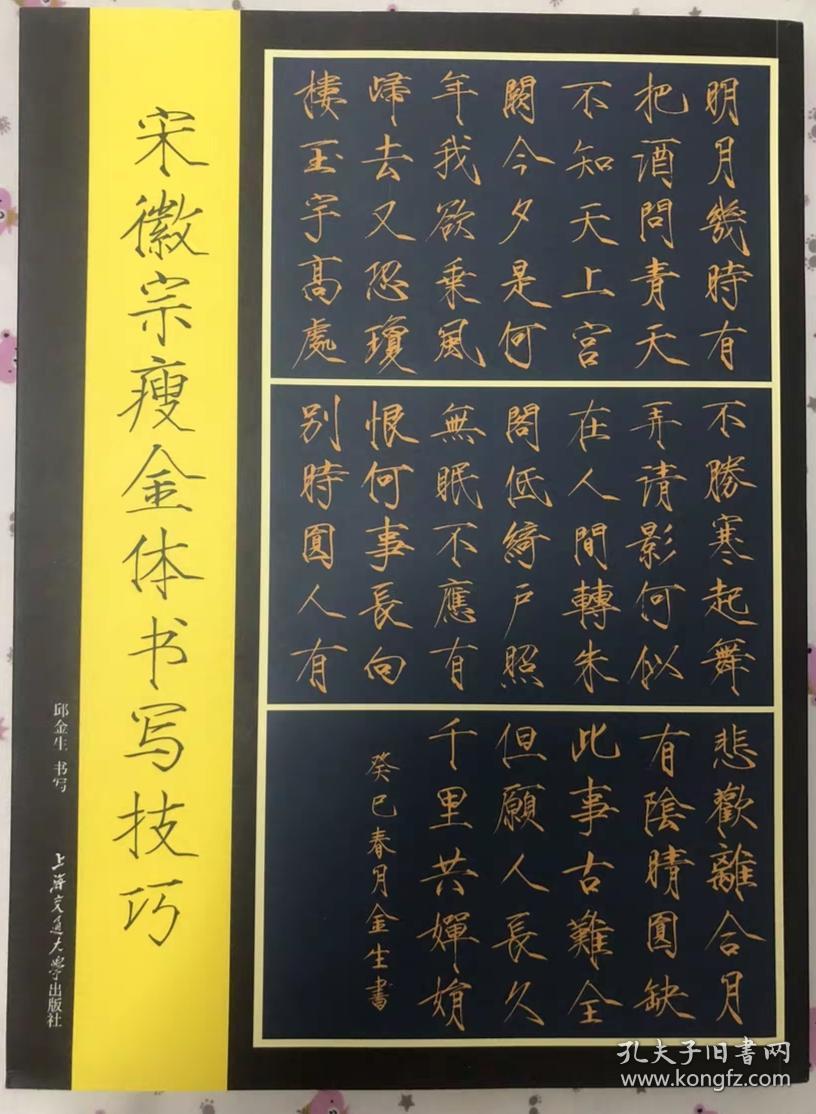 宋徽宗瘦金体书写技巧
邱金生 书写
上海交通大学出版社
明月幾時有
把酒問青天
不知天上宫
闕今夕是何
年我欲乗風
歸去又恐瓊
樓玉宇高處
不勝寒起舞
弄清影何似
在人間轉朱
閣低綺户照
無眠不應有
恨何事長向
别時圓人有
悲歡離合月
有陰晴圓缺
此事古難全
但願人長久
千里共嬋娟
癸巳春月金生書
孔夫子旧書网
www.kongfz.com